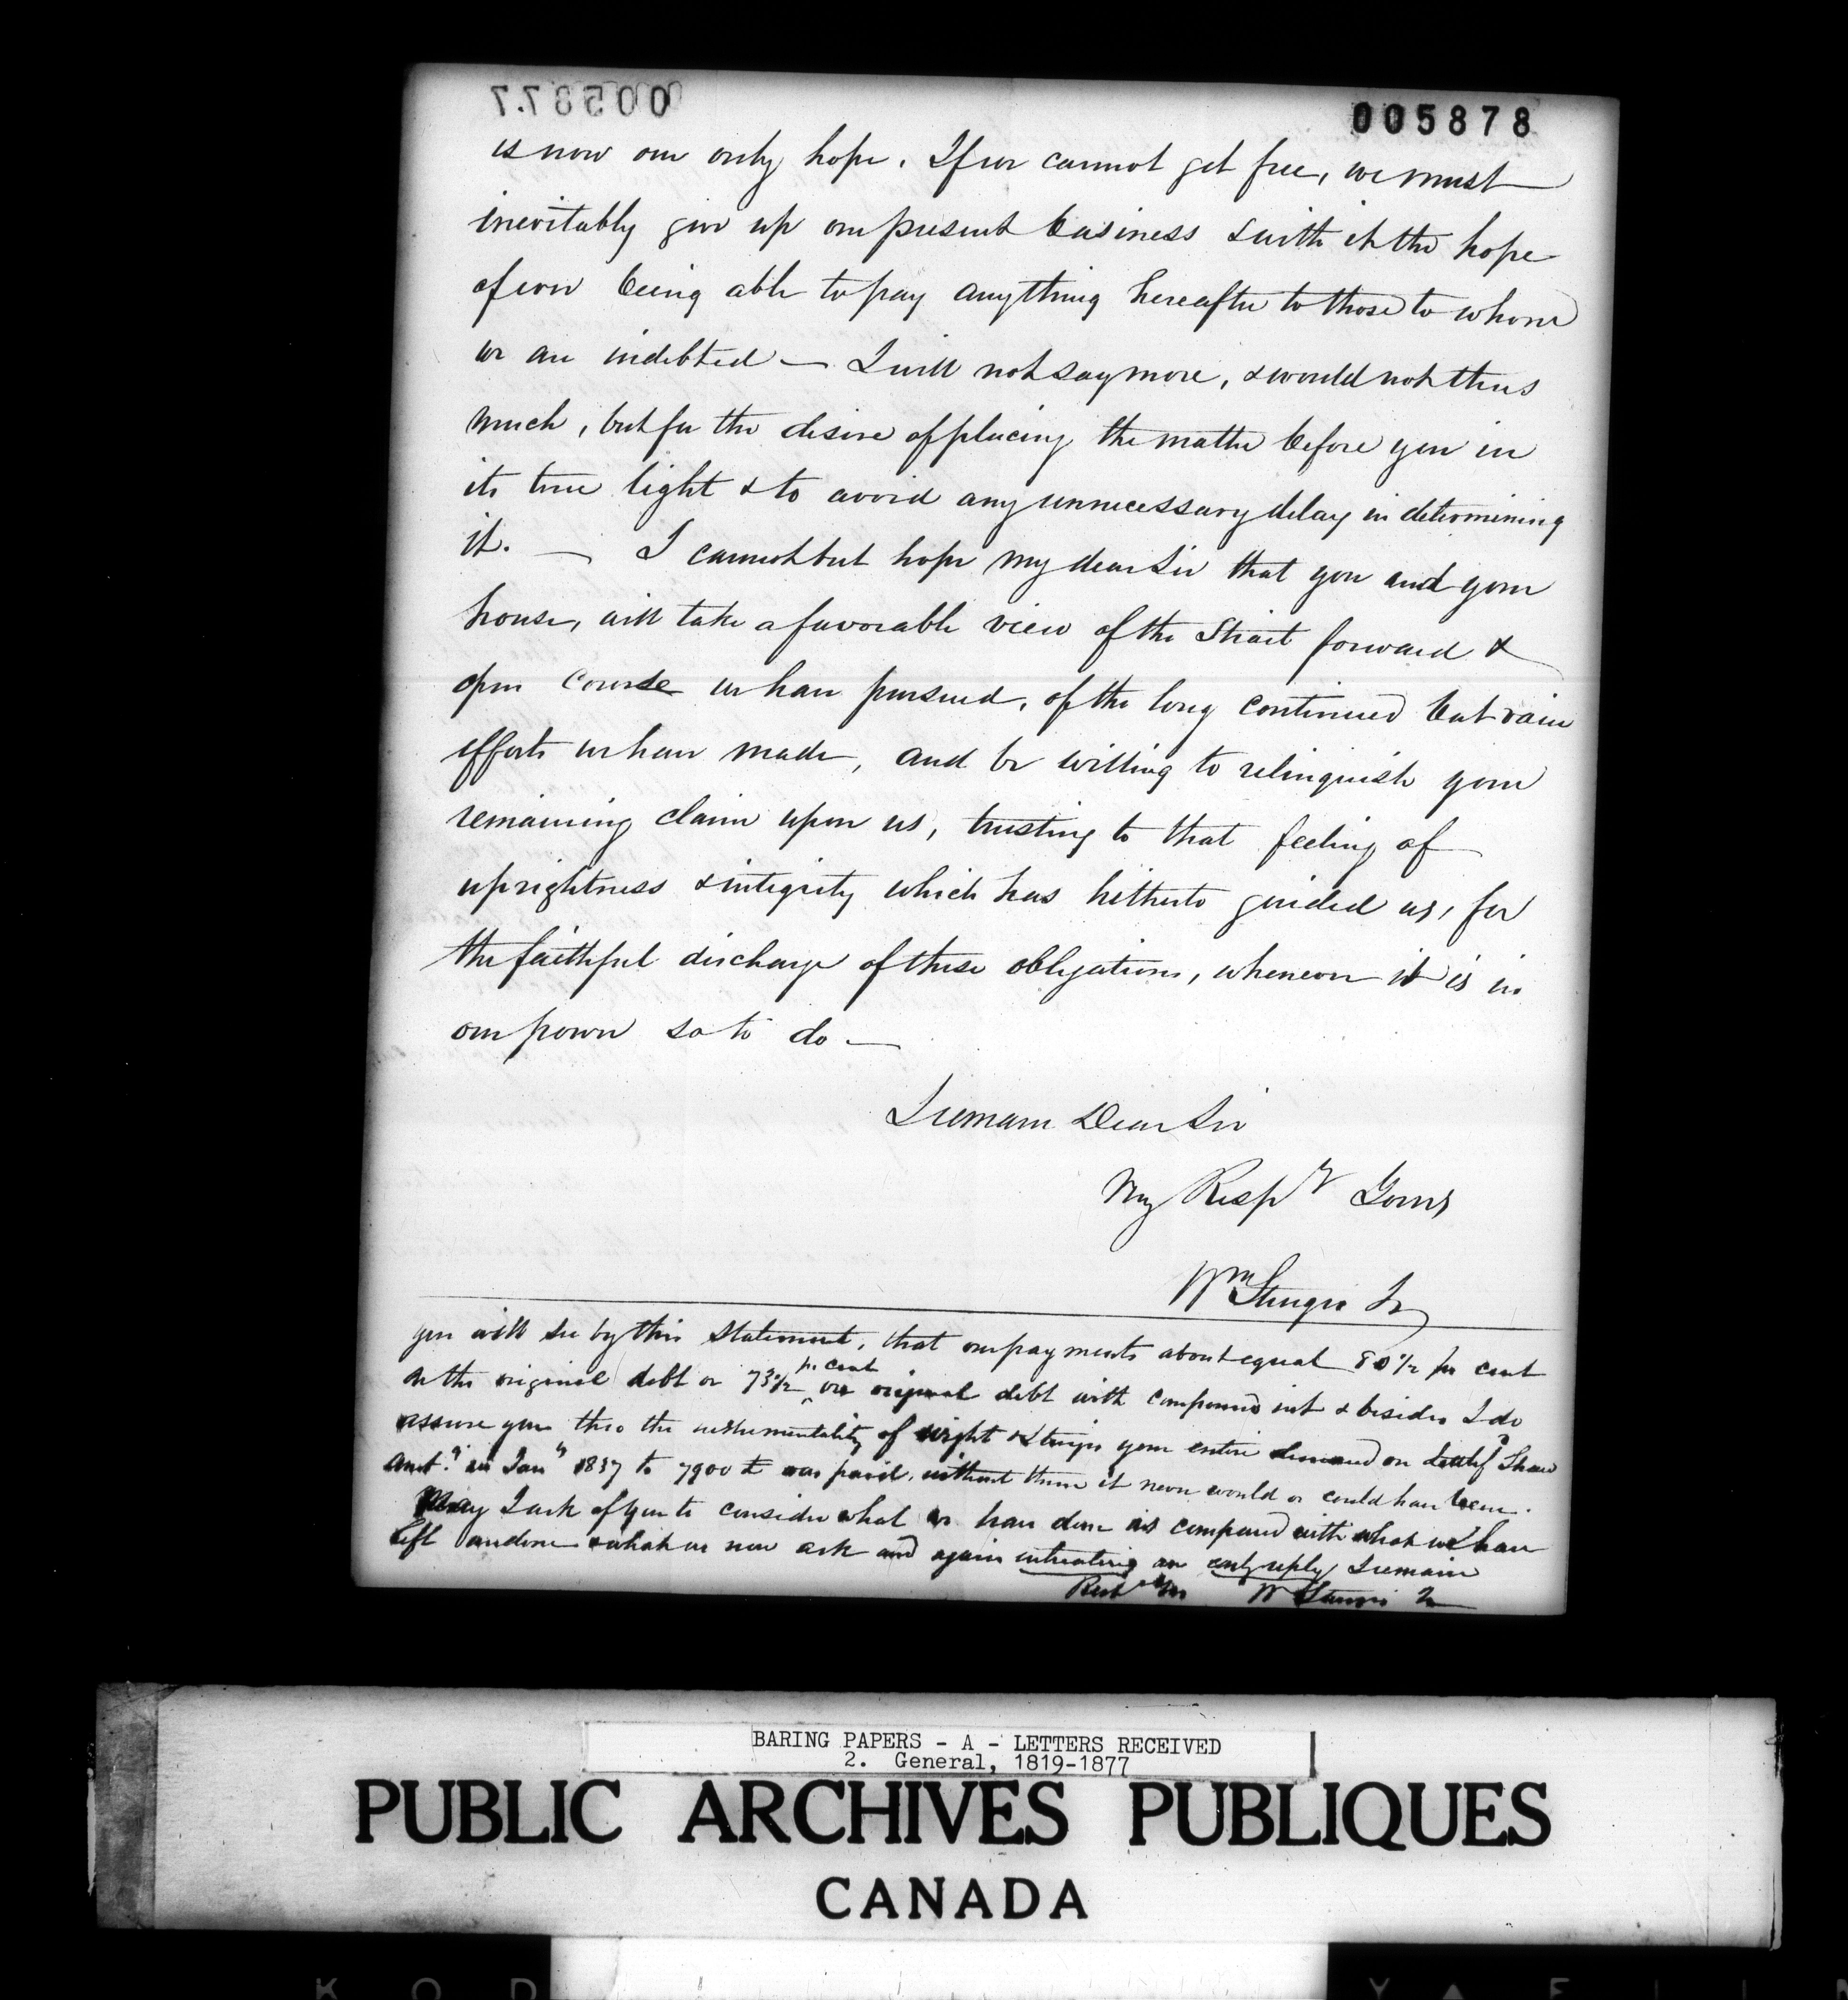 005877
005878
is now our only hope. If we cannot get free, we must
inevitably give up our present business & with it the hope
of ever being able to pay anything hereafter to those to whom
we are indebted — I will not say more, & would not thus
much, but for the desire of placing the matter before you in
its true light & to avoid any unnecessary delay in determining
it. — I cannot but hope my dear Sir that you and your
house, will take a favorable view of the Strait forward &
open course we have pursued, of the long continued but vain
efforts we have made, and be willing to relinquish your
remaining claim upon us, trusting to that feeling of
uprightness & integrity which has hitherto guided us, for
the faithful discharge of these obligations, whenever it is in
our power so to do —
I remain Dear Sir
Very Respy Yours
Wm Sturgis Jr
you will see by this statement, that our payments about equal 80 1/2 pr cent
on the original debt or 73 1/2 pr cent on original debt with compound int & besides I do
assure you thro the instrumentality of Wight & Sturgis your entire demand on Shaw
amt.g in Jany 1837 to 7900 £ was paid, without them it never would or could have been.
May I ask of you to consider what we have done as compared with what we have
left undone & what we now ask and again intreating an early reply I remain
Rest Yrs W Sturgis Jr
BARING PAPERS - A - LETTERS RECEIVED
2. General, 1819-1877
PUBLIC ARCHIVES PUBLIQUES
CANADA